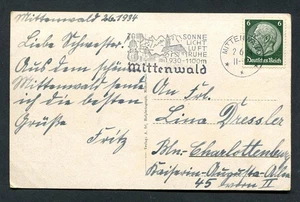 Mittenwald 2.6.1934
Liebe Schwester.
Aus dem schönen
Mittenwald sende
ich die besten
Grüße
Fritz
SONNE
LICHT
LUFT
RUHE
930-1100m
Mittenwald
MITTENWALD
2.6.
11-
6 6
Deutsches Reich
An Frl.
Lina Dressler
Bln.-Charlottenburg
Kaiserin-Augusta-Allee
45